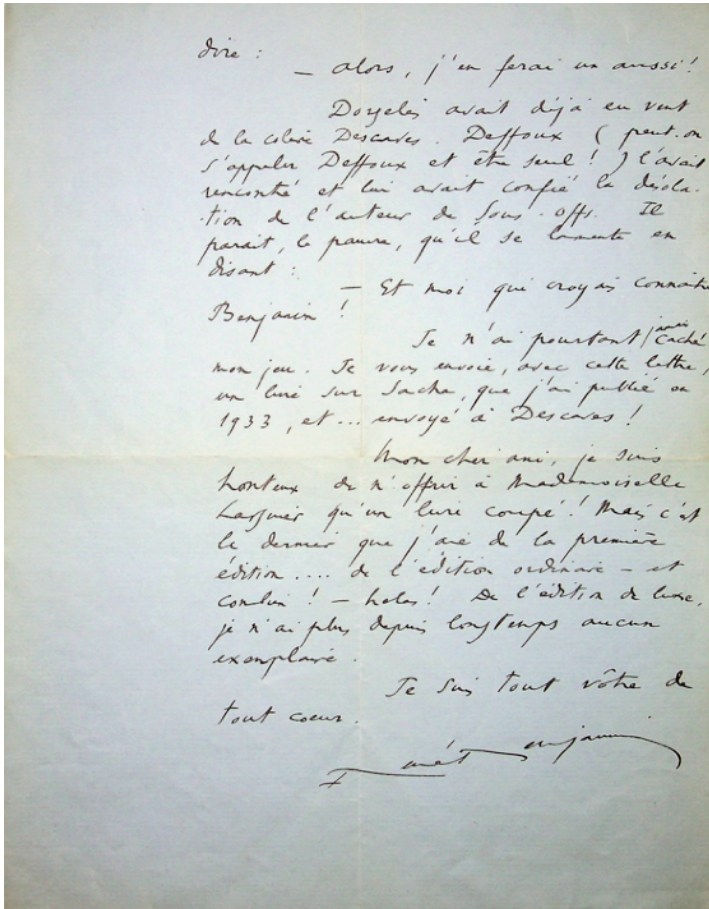 dire :
— Alors, j'en ferai un aussi !
Dorgelès avait déjà eu vent
de la colère Descaves. Deffoux ( peut-on
s'appeler Deffoux et être seul ! ) l'avait
rencontré et lui avait confié la désola-
-tion de l'auteur de Sous-offs. Il
paraît, le pauvre, qu'il se lamente en
disant :
— Et moi qui croyais connaître
Benjamin !
Je n'ai pourtant jamais caché
mon jeu. Je vous envoie, avec cette lettre,
un livre sur Sacha, que j'ai publié en
1933, et... envoyé à Descaves !
Mon cher ami, je suis
honteux de n'offrir à Mademoiselle
Larguier qu'un livre coupé ! Mais c'est
le dernier que j'aie de la première
édition.... de l'édition ordinaire — et
combien ! — hélas ! De l'édition de luxe,
je n'ai plus depuis longtemps aucun
exemplaire.
Je suis tout vôtre de
tout coeur.
René Benjamin